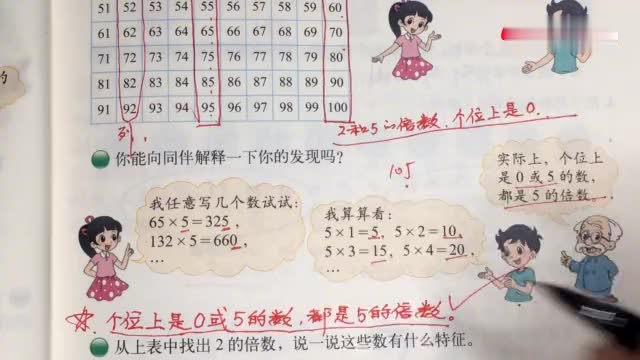 51 52 53 54 55 56 57 58 59 60
61 62 63 64 65 66 67 68 69 70
71 72 73 74 75 76 77 78 79 80
81 82 83 84 85 86 87 88 89 90
91 92 93 94 95 96 97 98 99 100
列,
2和5的倍数,个位上是0.
你能向同伴解释一下你的发现吗?
105
实际上,个位上
是0或5的数,
都是5的倍数。
我任意写几个数试试:
65×5=325,
132×5=660,
…
我算算看:
5×1=5,5×2=10,
5×3=15,5×4=20,
…
个位上是0或5的数,都是5的倍数.
从上表中找出2的倍数,说一说这些数有什么特征。